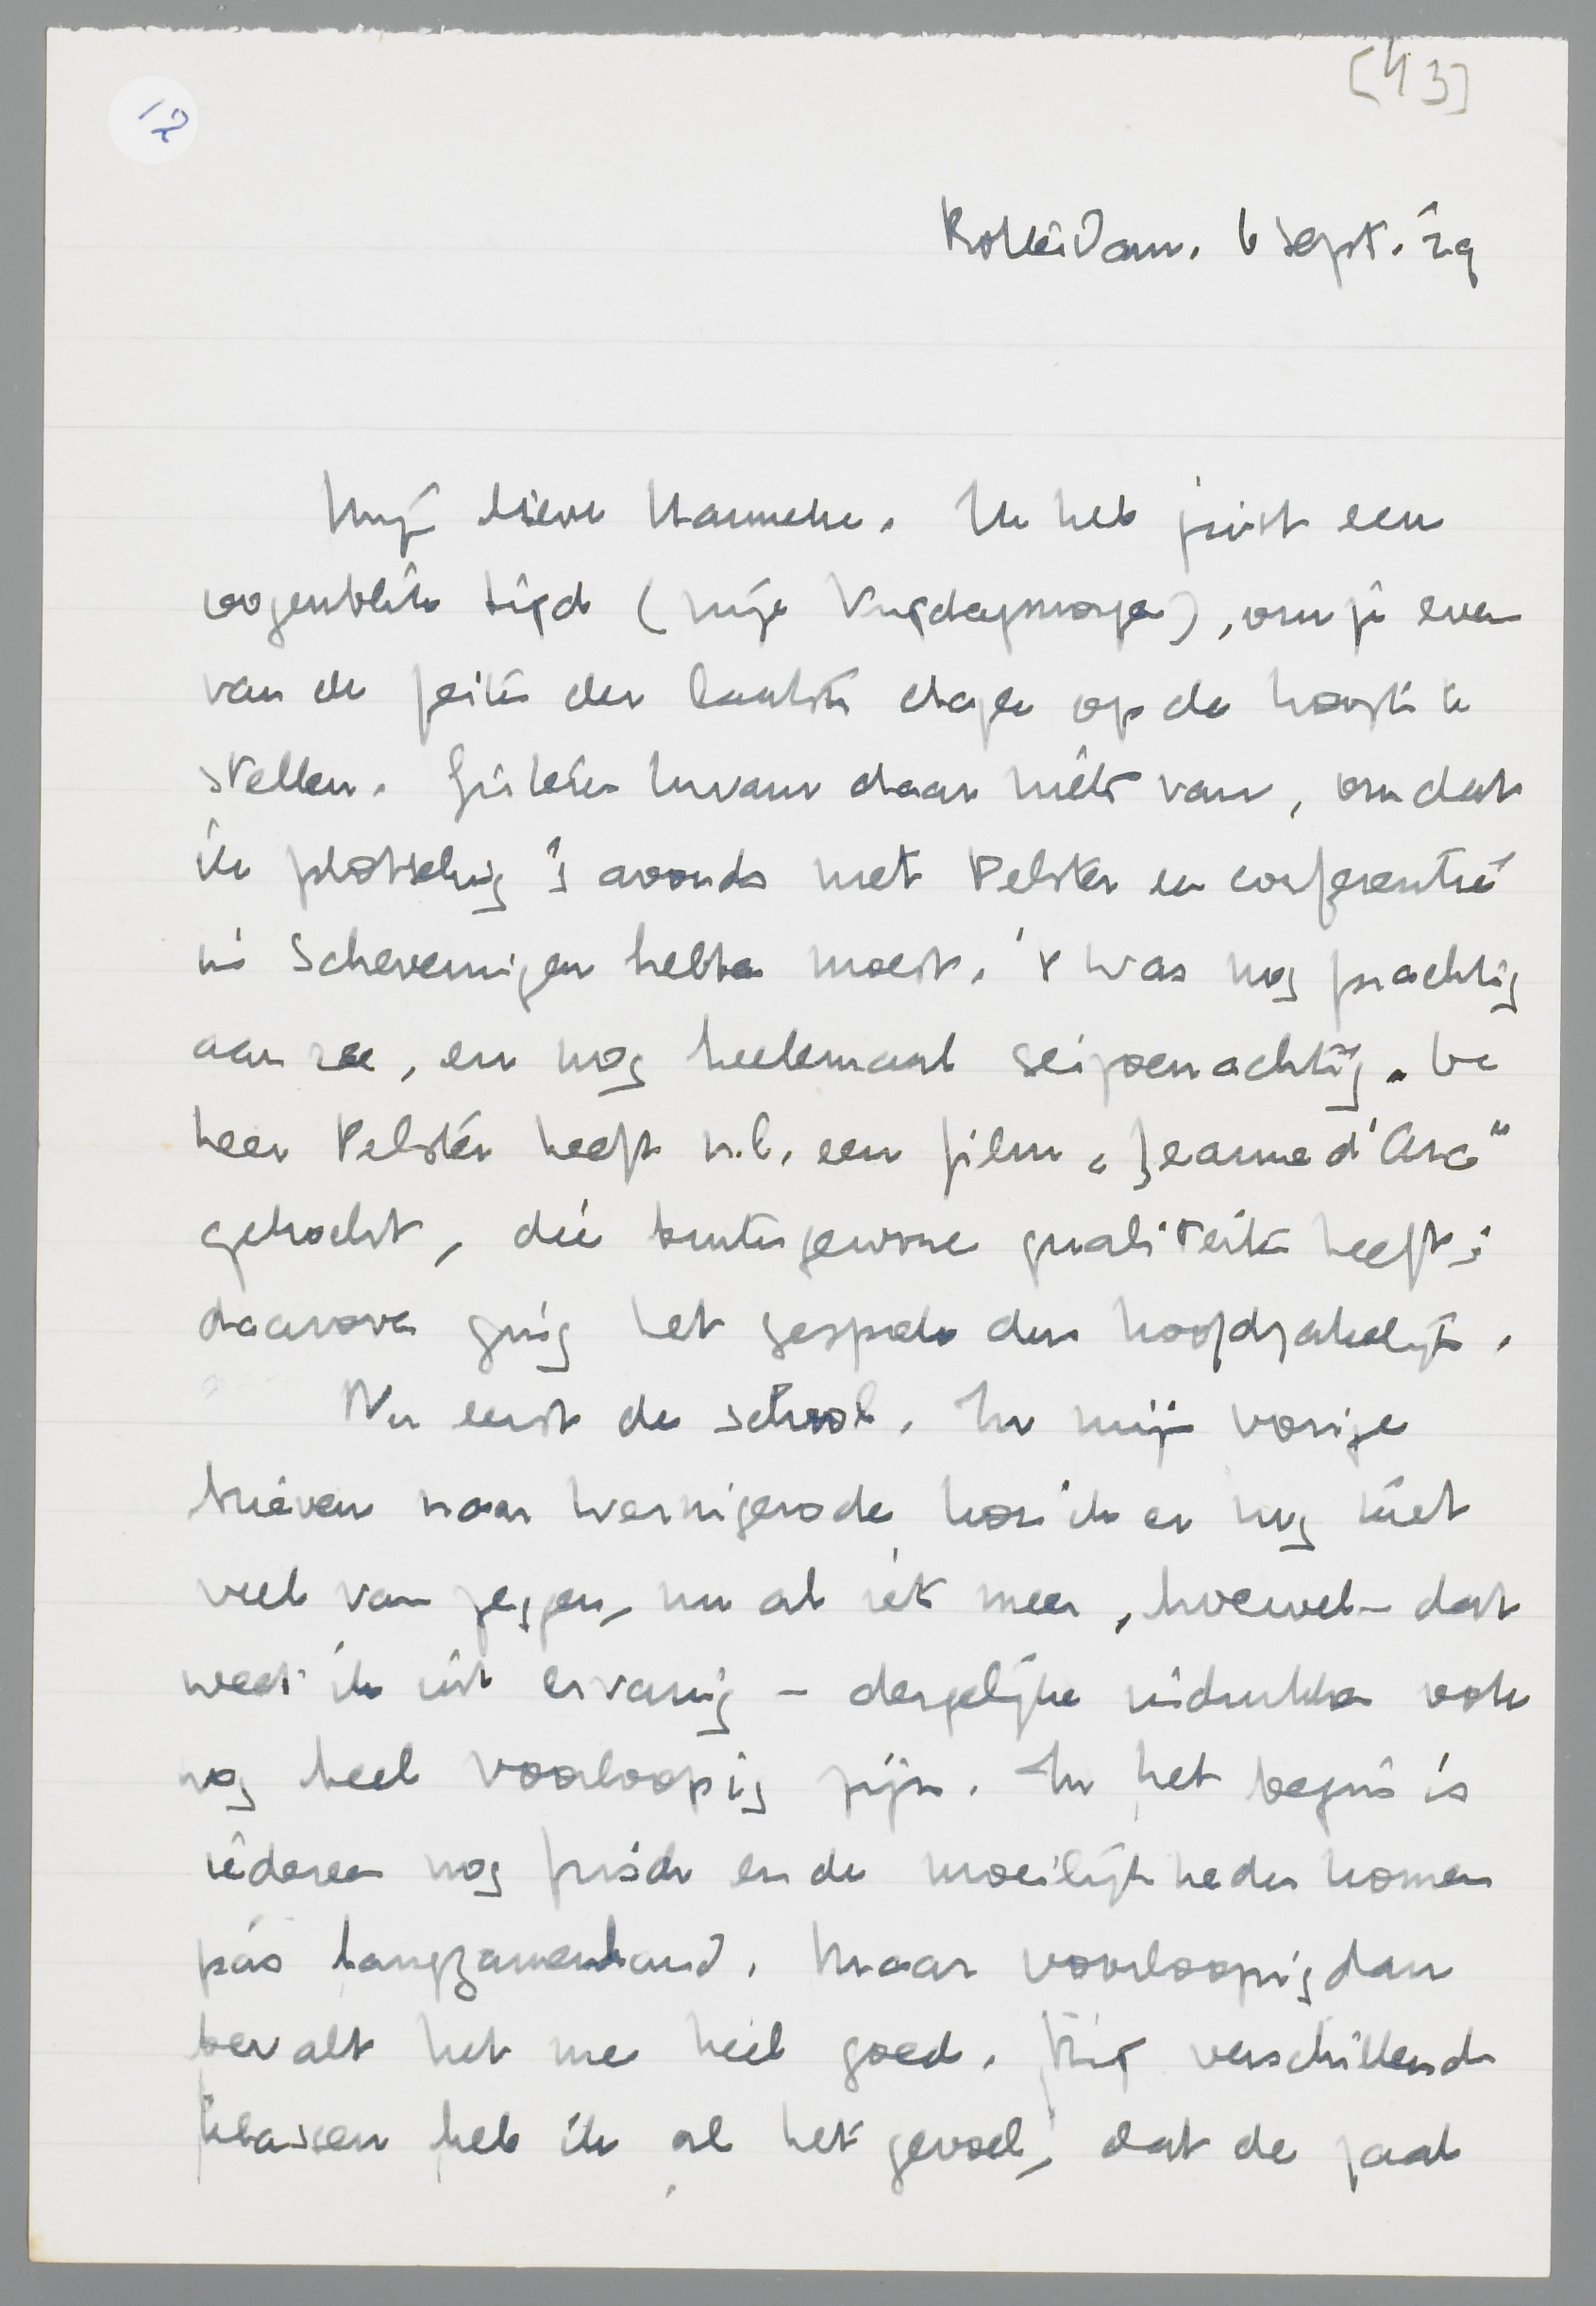 [43]
12
Rotterdam. 6 sept. '29
Mijn lieve Hanneke. Ik heb juist een
oogenblik tijd (mijn Vrijdagmorgen), om je even
van de feiten der laatste dagen op de hoogte te
stellen. Gisteren kwam daar niets van, omdat
ik plotseling 's avonds met Pelster een conferentie
in Scheveningen hebben moest. 't was nog prachtig
aan zee, en nog heelemaal seizoenachtig. De
heer Pelster heeft n.l. een film „Jeanne d'Arc"
gekocht, die buitengewone qualiteiten heeft;
daarover ging het gesprek dan hoofdzakelijk.
Nu eerst de school. In mijn vorige
brieven naar Wernigerode kon ik er nog niet
veel van zeggen, nu al iets meer, hoewel – dat
weet ik uit ervaring – dergelijke indrukken ook
nog heel voorloopig zijn. In het begin is
iedereen nog frisch en de moeilijkheden komen
pas langzamerhand. Maar voorloopig dan
bevalt het me heel goed. Bij verschillende
klassen heb ik al het gevoel, dat de zaak